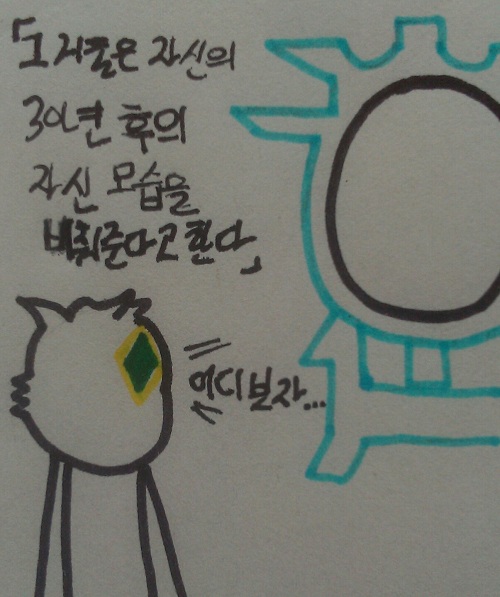 「그 거울은 자신의
30년 후의
자신 모습을
비춰준다고 한다」
어디 보자...